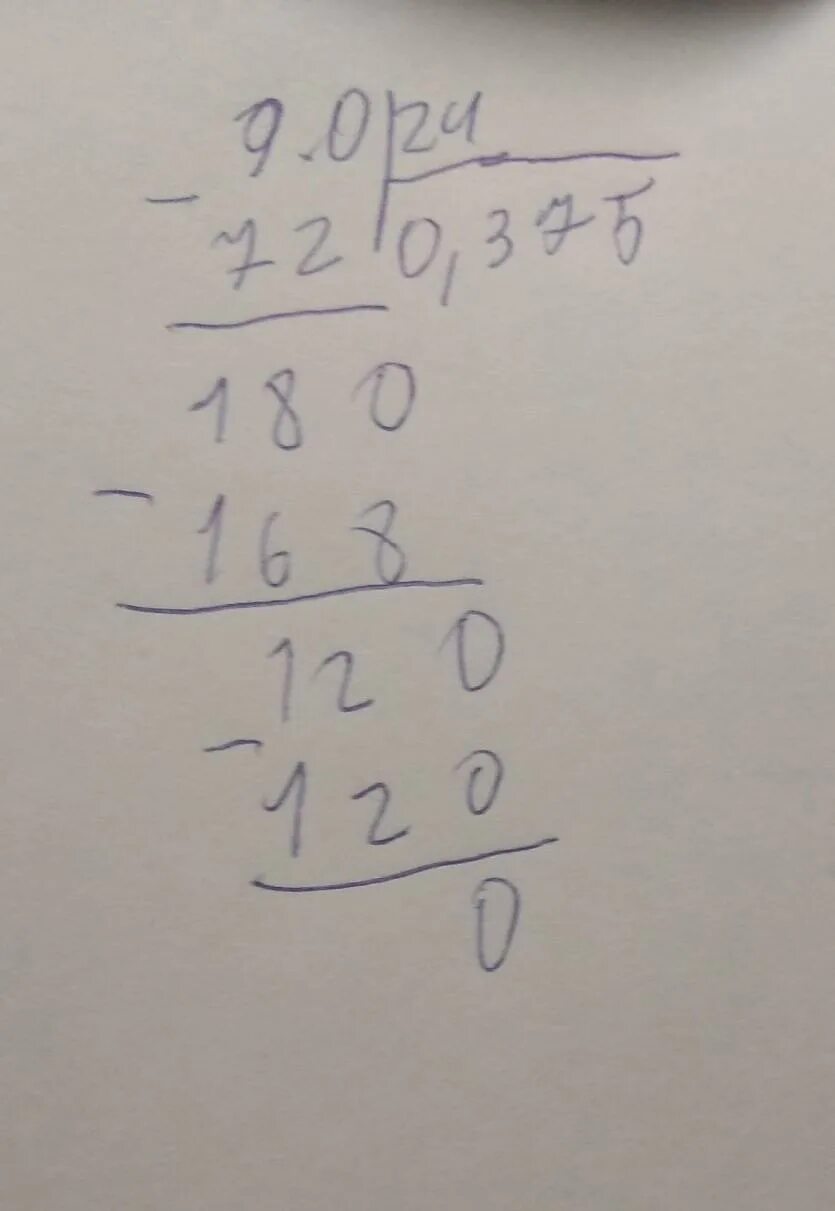 9.0 24
- 72 0,375
180
- 168
120
- 120
0